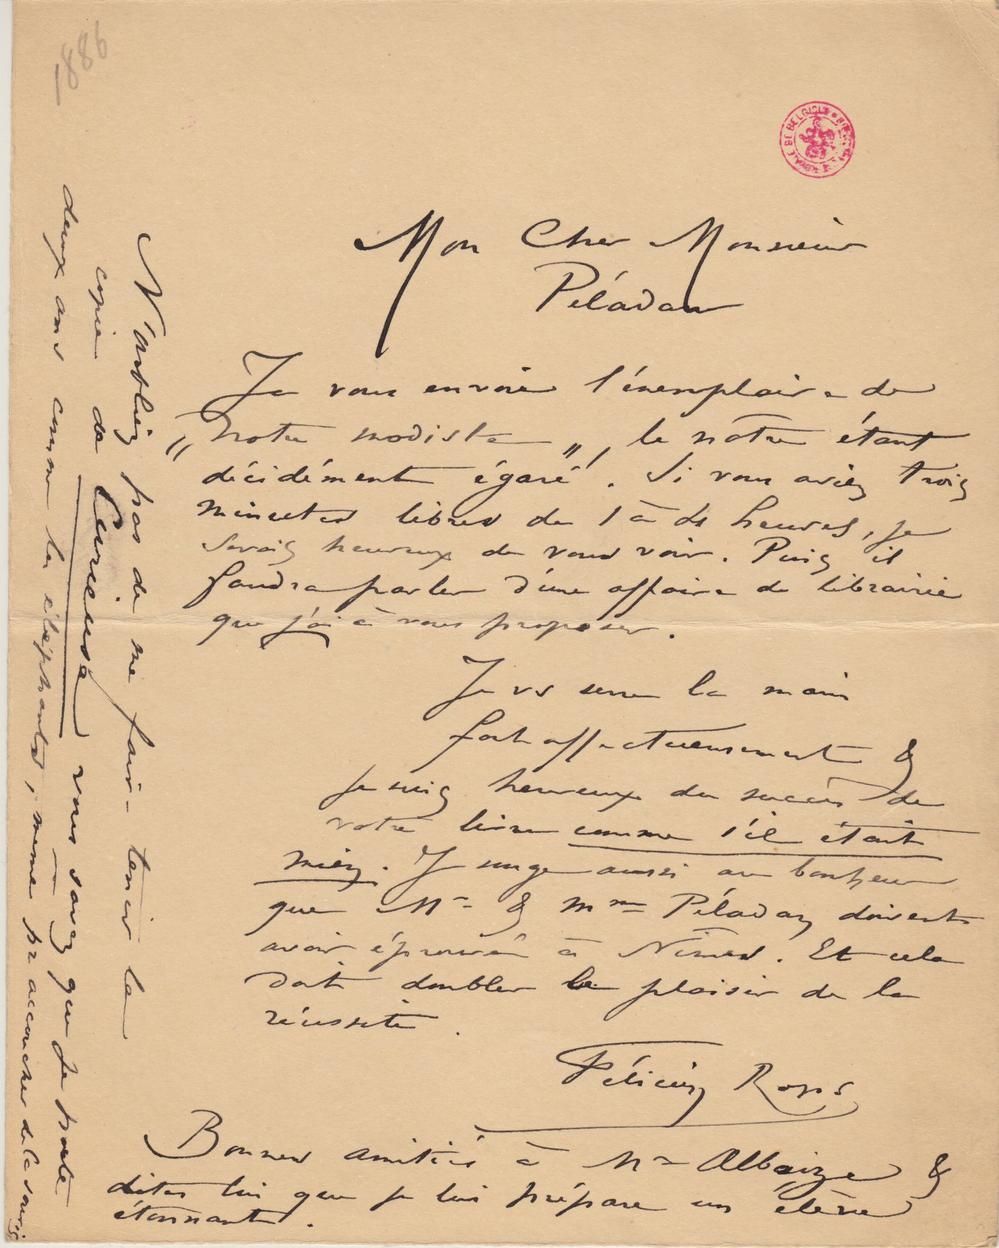 1886
BIBLIOTHÈQUE ROYALE DE BELGIQUE
Mon Cher Monsieur
Péladan
Je vous envoie l'exemplaire de
„notre modiste„, le nôtre étant
décidément égaré. Si vous aviez trois
minutes libres de 1 à 4 heures, je
serais heureux de vous voir. Puis il
faudra parler d'une affaire de librairie
que j'ai à vous proposer.
Je vs serre la main
fort affectueusement &
je suis heureux du succès de
votre livre comme s'il était
mien. Je songe aussi au bonheur
que Mr & Mme Péladan doivent
avoir éprouvé à Nîmes. Et cela
doit doubler le plaisir de la
réussite.
Félicien Rops
Bonnes amitiés à Mr Albaize &
dites lui que je lui prépare un élève
étonnant.
N'oubliez pas de me faire tenir la
copie de Curieuse vous savez que je porte
deux ans comme les éléphantes, même pr accoucher de la souris